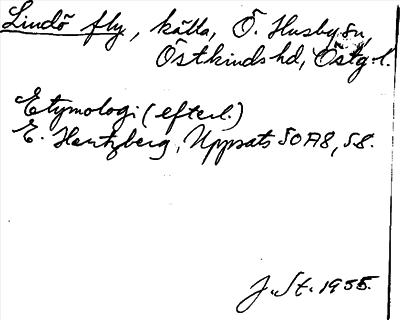 Lindö fly, källa, Ö. Husby sn,
Östkinds hd, Östg-l.
Etymologi (efterl.)
E. Hertzberg, Uppsats SOA8, s8.
J. St. 1955.